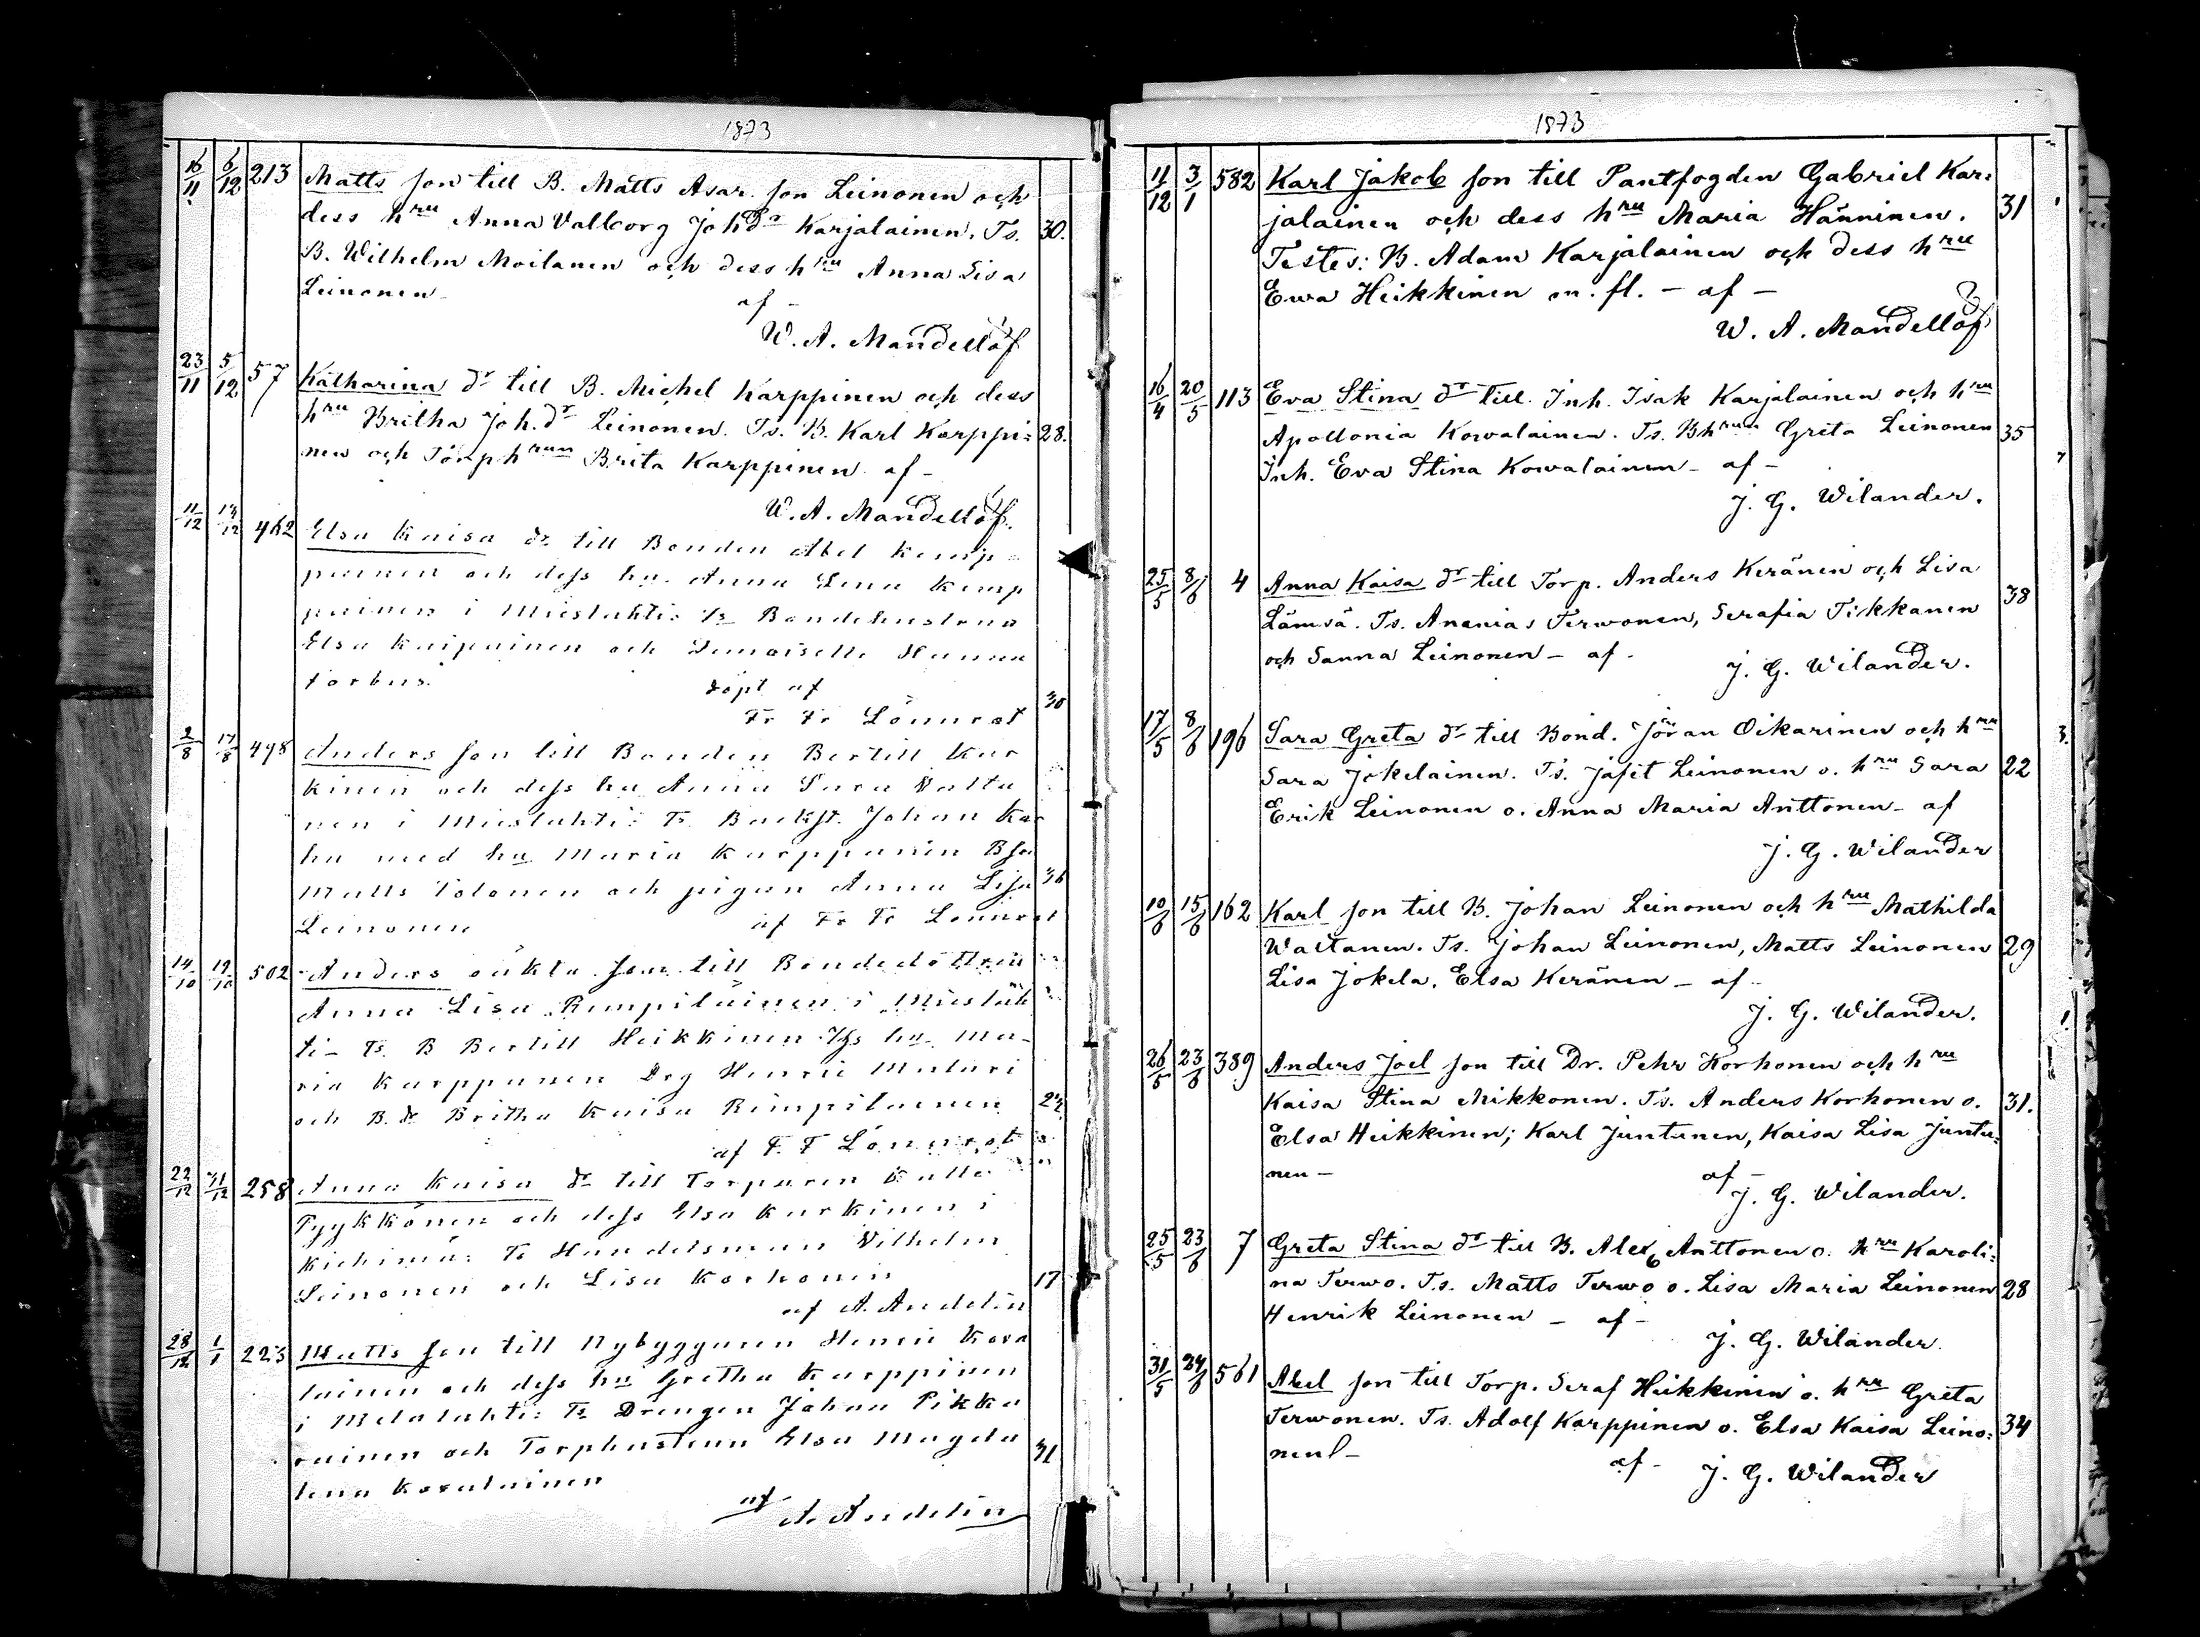 1873
16/11 6/12 213 Matts son till B. Matts Asar. son Leinonen och
dess hru Anna Valborg Joh.dr Karjalainen. Ts. 30.
B. Wilhelm Moilanen och dess hru Anna Lisa
Leinonen af -
W. A. Mandellöf
23/11 5/12 57 Katharina dr till B. Michel Karppinen och dess
hru Britha Joh.dr Leinonen. Ts. B. Karl Karppi= 28.
nen och Torphrun Brita Karppinen af -
W. A. Mandellöf.
11/12 462 Elsa Kaisa dr till Bonden Abel Kemp-
painen och dess hu. Anna Lena Kemp
painen i Mieslahti: Ts Bondehustrun
Elsa Kaipainen och Demoiselle Hanna
Forbus. döpt af
Fr Fr Lönnrot 30
2/8 17/8 498 Anders son till Bonden Bertill Kur
kinen och dess hu Anna Sara Valta
nen i Mieslahti: Ts. Backst. Johan Kar
hu med hu Maria Karppanen Bson
Matts Tolonen och pigan Anna Lisa 36
Leinonen af Fr Fr Lönnrot
14/10 19/10 502 Anders oäkta son till Bondedottren
Anna Lisa Rimpiläinen i Mieslah
ti- Ts. B Bertill Heikkinen hu Ma-
ria Karppanen Drg Henric Mulari
och B. dr Britha Kaisa Rimpilainen 24
af F. F Lönnrot
22/12 31/12 258 Anna Kaisa dr till Torparen Kalle
Pyykkönen och dess Elsa Kurkinen i
Kiehimä: Ts Handelsman Vilhelm
Leinonen och Lisa Korhonen 17
af A. Andelin
28/12 1/1 223 Matts son till Nybyggaren Henric Kova
lainen och dess hu Gretha Karppinen
i Melalahti: Ts Drengen Johan Pikka
rainen och Torphustrun Elsa Magda 31
lena Kovalainen
af A. Andelin
1873
11/12 3/1 582 Karl Jakob son till Pantfogden Gabriel Kar=
jalainen och dess hru Maria Hänninen. 31
Testes: B. Adam Karjalainen och dess hru
Ewa Heikkinen m. fl. - af -
W. A. Mandellöf
16/4 20/5 113 Eva Stina dr till Inh. Isak Karjalainen och hru
Apollonia Kowalainen. Ts. Bhrun Greta Leinonen 35
Inh. Eva Stina Kowalainen - af -
J. G. Wilander.
25/5 8/6 4 Anna Kaisa dr till Torp. Anders Keränen och Lisa
Lämsä. Ts. Ananias Terwonen, Serafia Tikkanen 38
och Sanna Leinonen - af -
J. G. Wilander.
17/5 8/6 196 Sara Greta dr till Bond. Jöran Oikarinen och hru
Sara Jokelainen. Ts. Jafet Leinonen o. hru Sara 22
Erik Leinonen o. Anna Maria Anttonen - af
J. G. Wilander
10/6 15/6 162 Karl son till B. Johan Leinonen och hru Mathilda
Waltanen. Ts. Johan Leinonen, Matts Leinonen 29
Lisa Jokela, Elsa Keränen - af -
J. G. Wilander.
26/5 23/6 389 Anders Joel son till Dr. Pehr Korhonen och hru
Kaisa Stina Mikkonen. Ts. Anders Korhonen o. 31.
Elsa Heikkinen; Karl Juntunen, Kaisa Lisa Juntu=
nen - af -
J. G. Wilander.
25/5 23/6 7 Greta Stina dr till B. Alex Anttonen o. hru Karoli=
na Terwo. Ts. Matts Terwo o. Lisa Maria Leinonen 28
Henrik Leinonen - af -
J. G. Wilander.
31/5 24/6 561 Abel son till Torp. Seraf Heikkinen o. hru Greta
Terwonen. Ts. Adolf Karppinen o. Elsa Kaisa Leino= 34
nen - af - J. G. Wilander